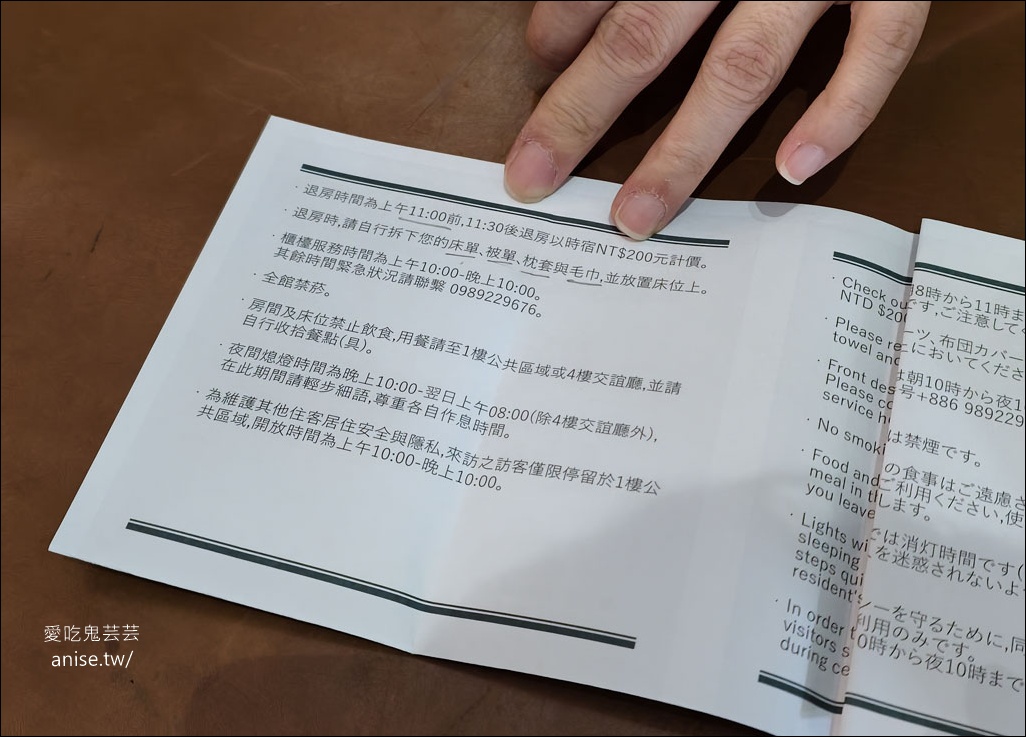 · 退房時間為上午11:00前,11:30後退房以時宿NT$200元計價。
· 退房時,請自行拆下您的床單、被單、枕套與毛巾,並放置床位上。
· 櫃檯服務時間為上午10:00-晚上10:00。
其餘時間緊急狀況請聯繫 0989229676。
· 全館禁菸。
· 房間及床位禁止飲食,用餐請至1樓公共區域或4樓交誼廳,並請
自行收拾餐點(具)。
· 夜間熄燈時間為晚上10:00-翌日上午08:00(除4樓交誼廳外),
在此期間請輕步細語,尊重各自作息時間。
· 為維護其他住客居住安全與隱私,來訪之訪客僅限停留於1樓公
共區域,開放時間為上午10:00-晚上10:00。
· Check
NTD $200
· Please
towel and
· Front
Please
service
· No
· Food and
meal in
you leave
· Lights
sleeping
steps
resident's
· In order
visitors
during
8時から11時ま
です,ご注意して
ーツ、布団カバー
においてくださ
は朝10時から夜1
号+886 98922
は禁煙です。
の食事はご遠慮
ご利用ください,使
します。
は消灯時間です(
を迷惑されないよ
シーを守るために,同
利用のみです。
0時から夜10時まで
愛吃鬼芸芸
anise.tw/